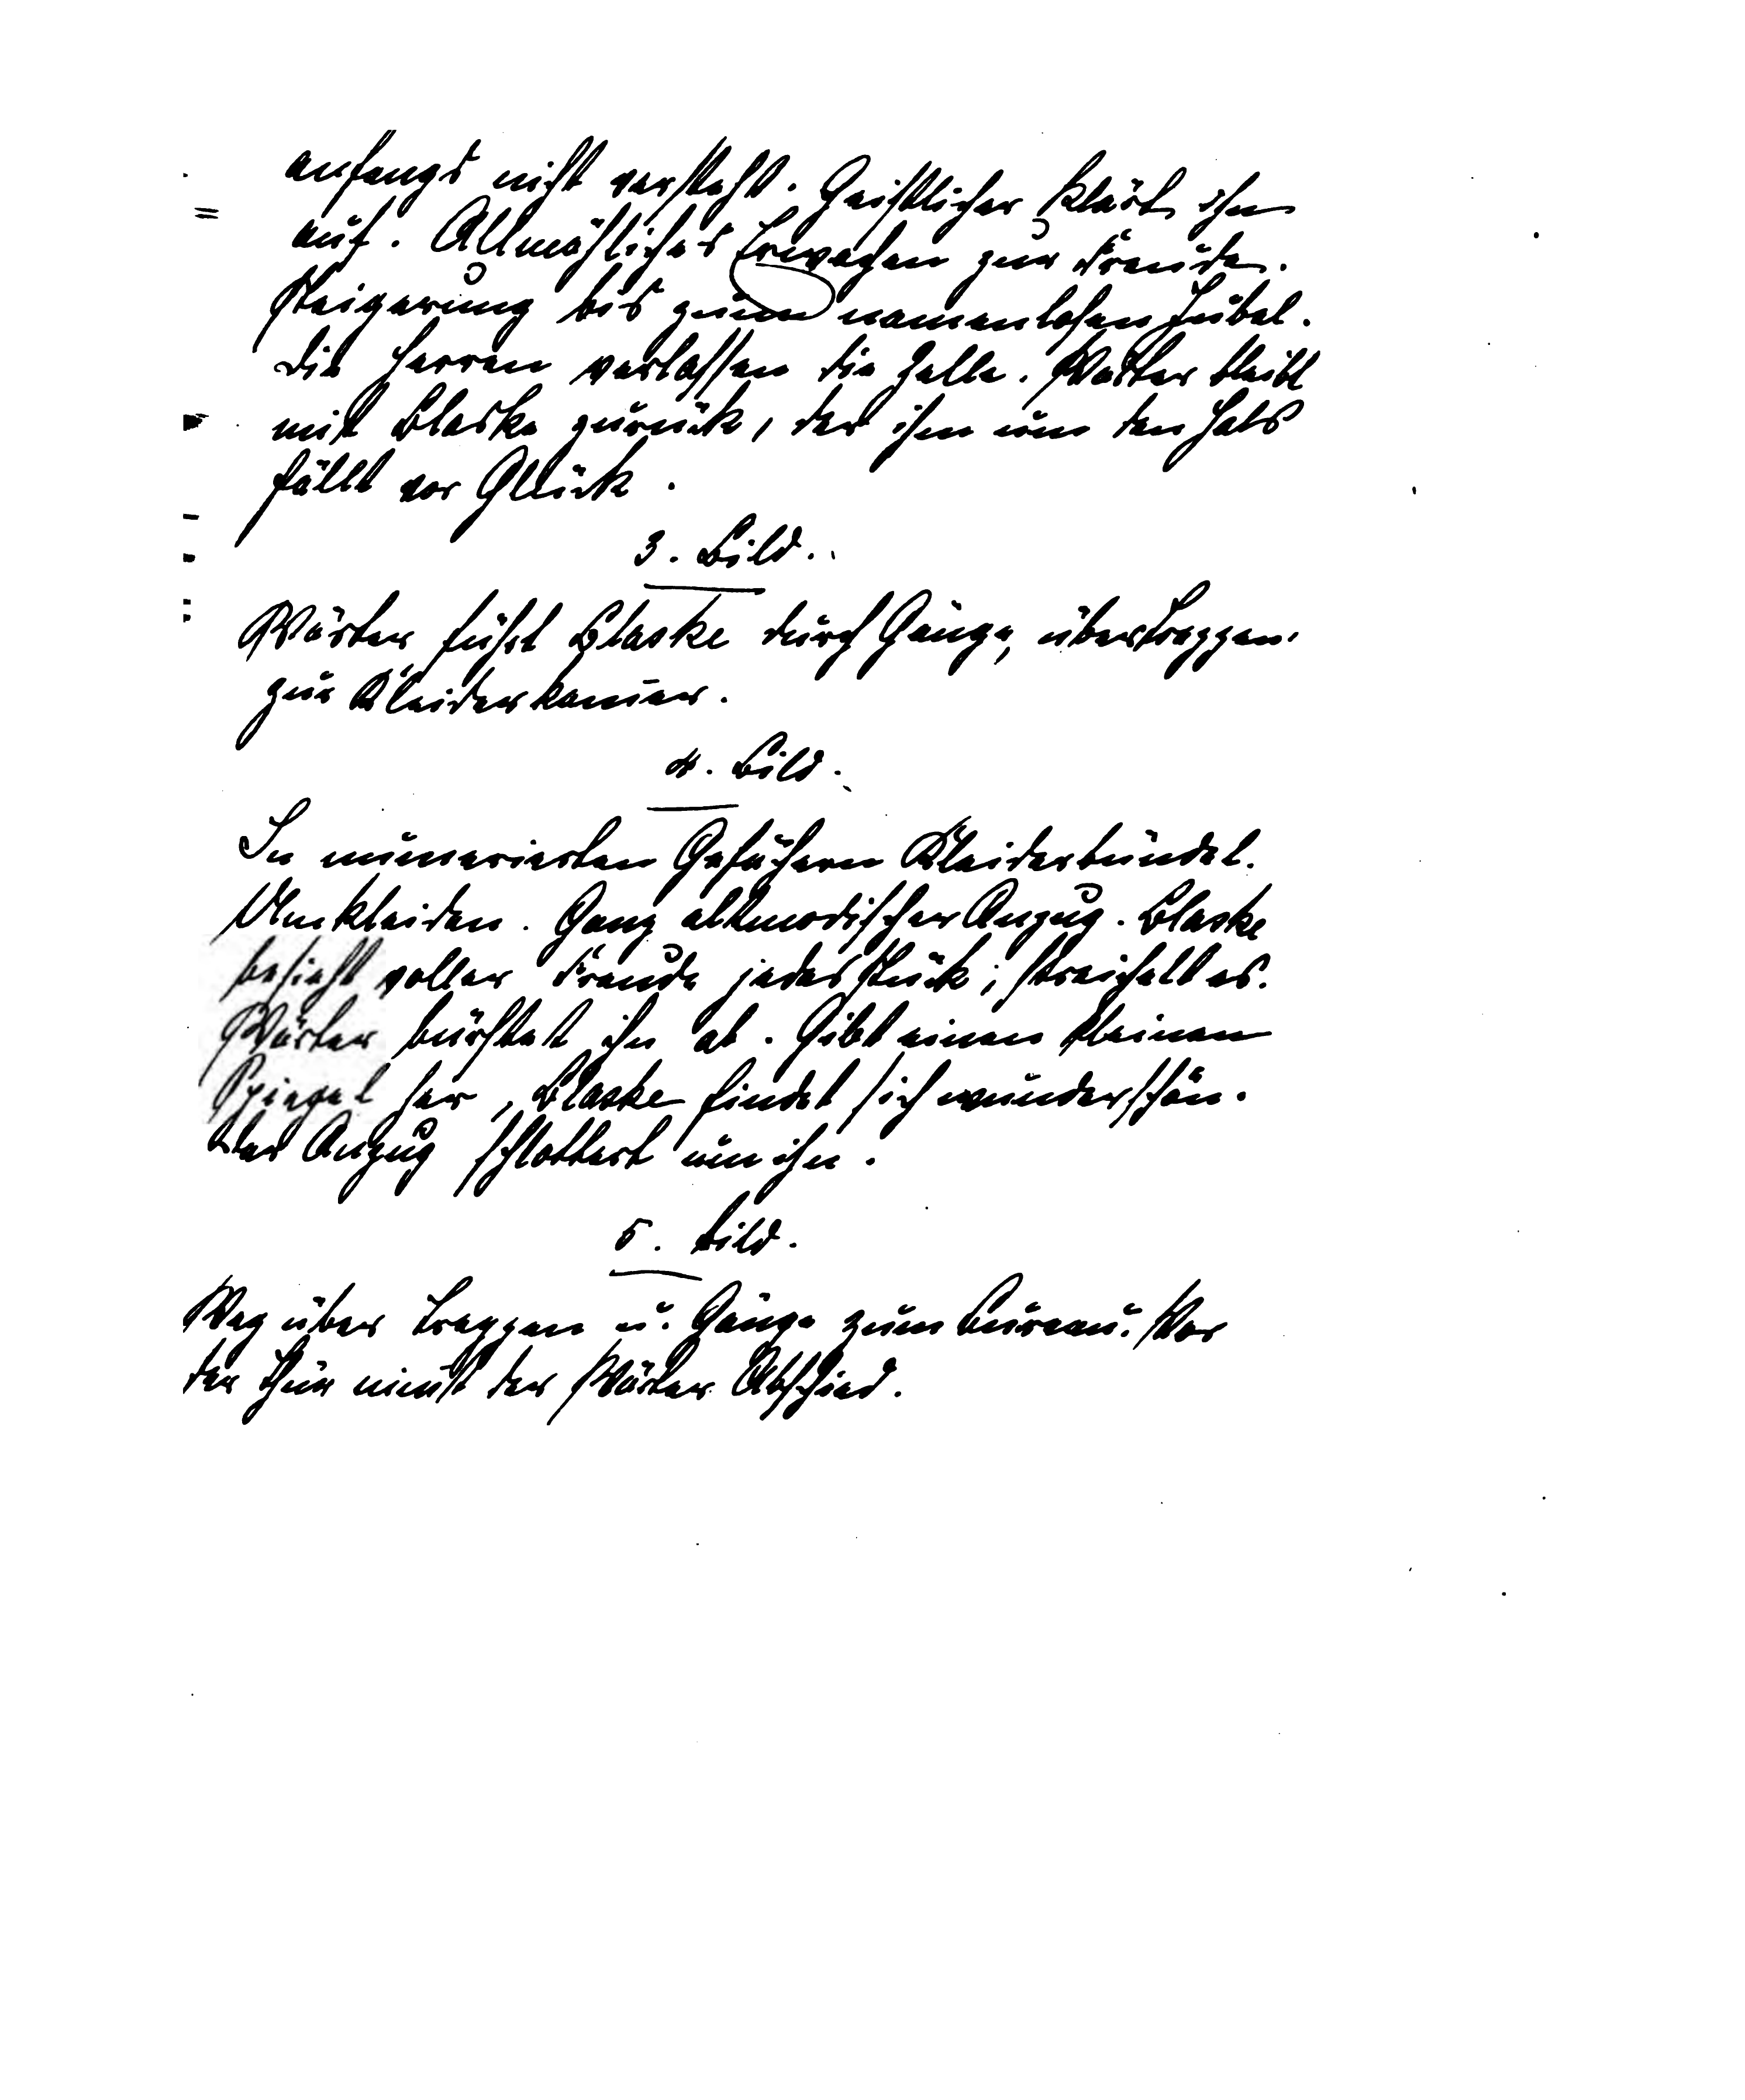 anfangs nicht versteht. Geistlicher klärt ihn
auf. Allmähliches Erwachen zur Freude.
Steigerung bis zum namenlosen Jubel.
Die Herren verlassen die Zelle. Wärter bleibt
mit Blaske zurück, der ihm um den Hals
fällt vor Glück.
3. Bild.
Wärter führt Blaske durch Gänge, über Treppen
zur Kleiderkam̄er.
4. Bild.
In num̄erierten Gefächern Kleiderbündel.
Umkleiden. Ganz altmodischer Anzug. Blaske
besieht voller Freude jedes Stück; streichelt es.
Wärter bürstet ihn ab. Gibt einen kleinen
Spiegel her, Blaske findet sich wunderschön.
Der Anzug schlottert um ihn.
5. Bild.
Weg über Treppen u. Gänge zum Bureau. Vor
der Thür nim̄t der Wärter Abschied.